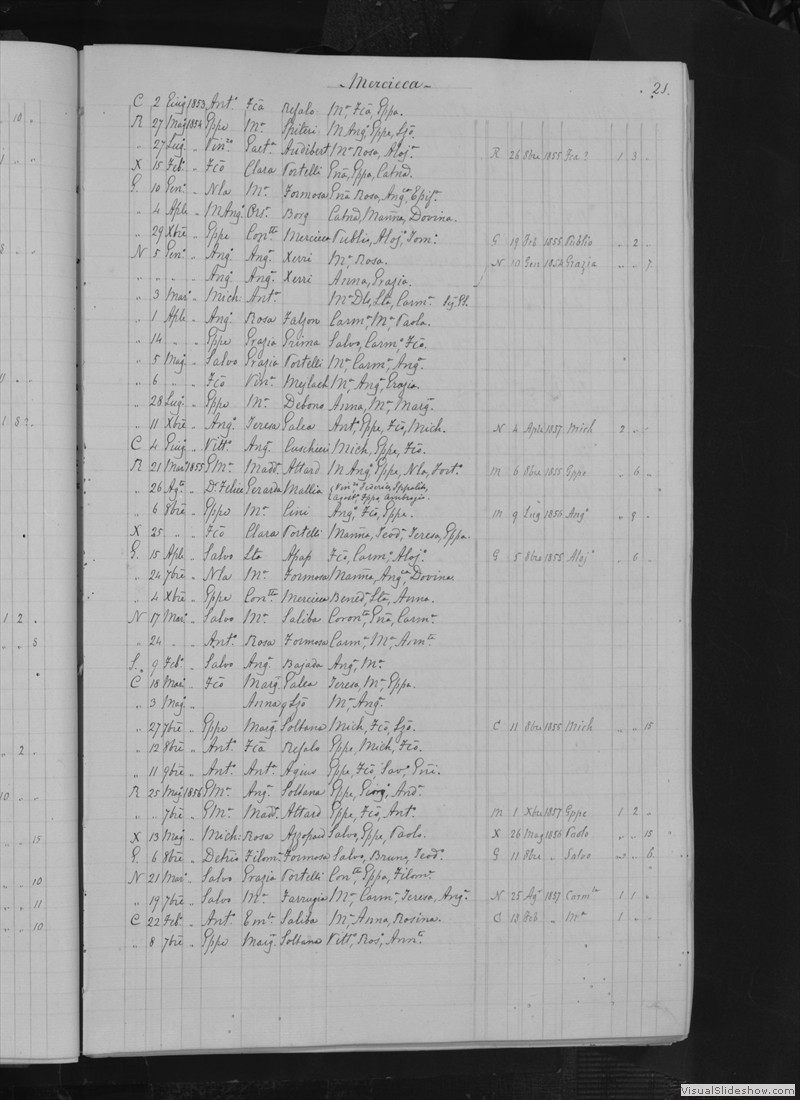 Mercieca
21.
C 2 Giug 1853 Ant° Fcõ Refalo Mª, Fcõ, Gppa.
R 27 Mag 1854 Gppe Mª Spiteri M Angª Gppe, Ljõ.
" 27 Lug " Vinzo Gaetª Audibert Mª Rosa, Alojª R 26 Obre 1855 1 3 "
X 15 Feb° " Fcõ Clara Portelli Gnã, Gppa, Catnã.
G. 10 Gen° " Nla Mª Formosa Gnã Rosa, Angª, Epifª.
" 4 Aple " M Angª Orsª Borg Catnã, Mannã, Dovina.
" 29 Xbre " Gppe Contta Mercieca Publio, Alojª, Tomª G 19 Feb 1855 Publio " 2 "
N 5 Gen° " Angª Angª Xerri Mª Rosa. N 10 Gen 1854 Grazia " " 7
" " " " Angª Angª Xerri Anna, Grazia.
" 3 Mar° " Mich: Antª Mª Dls, Lta, Carmª
" 1 Aple " Angª Rosa Falzon Carmª, Mª, Paola.
" 14 " " Gppe Grazia Grima Salvo, Carmª Fcõ.
" 5 Mag " Salvo Grazia Portelli Mª, Carmª, Angª.
" 6 " " Fcõ Vinª Meylach Mª, Angª, Grazia.
" 28 Lug° " Gppe Mª Debono Anna, Mª, Margª.
" 11 Xbre " Angª Teresa Galea Antª, Gppe, Fcõ, Mich. N 4 Aple 1857 Mich 2 " "
C 4 Giug " Vittª Angª Cuschieri Mich, Gppe, Fcõ.
R 21 Mar° 1855 GMª Madª Attard M Angª Gppe, Nla, Fortª. M 6 Obre 1855 Gppe " 6 "
" 26 Ag° " Dr Felice Gerarda Mallia
" 6 8bre " Gppe Mª Cini Angª, Fcõ, Gppa. M 9 Lug 1856 Angª " 8 "
X 25 " " Fcõ Clara Portelli Mannã, Teodª, Teresa, Gppa.
G. 15 Aple " Salvo Lta Apap Fcõ, Carmª, Alojª. G 5 Obre 1855 Alojª " 6 "
" 24 7bre " Nla Mª Formosa Mannã, Angª, Dovina.
" 4 Xbre " Gppe Contta Mercieca Benedª, Lta, Anna.
N 17 Mar° " Salvo Mª Saliba Coronta, Gnã, Carmª.
" 24 " " Antª Rosa Formosa Carmª, Mª, Annta
S. 9 Feb° " Salvo Angª Bajada Angª, Mª.
C 18 Mar° " Fcõ Margª Galea Teresa, Mª, Gppa.
" 3 Mag " Anna q Ljõ Mª, Angª.
" 27 7bre " Gppe Margª Soltana Mich, Fcõ, Ljõ. C 11 Obre 1855 Mich " " 15
" 12 8bre " Ant° Fcã Refalo Gppe, Mich, Fcõ.
" 11 9bre " Antª Antª Agius Gppe, Fcõ, Savª,
R 25 Mag 1856 GMª Angª Soltana Gppe, Giorgª, Andª.
" " 7bre " GMª Madª Attard Gppe, Fcõ, Antª. M 1 Xbre 1857 Gppe 1 2 "
X 13 Mag " Mich: Rosa Azzopard Salvo, Gppe, Paola. X 26 Mag 1856 Paolo " " 15
G. 6 8bre " Demª Filomª Formosa Salvo, Bruno, Teodª. G 11 Obre " Salvo " " 6
N 21 Mar° " Salvo Grazia Portelli Contta, Gppa, Filomª.
" 19 7bre " Salvo Mª Farrugia Mª, Carmª, Teresa, Angª. N 25 Ag° 1857 Carmta 1 1 "
C 22 Feb° " Antª Emª Saliba Mª, Anna, Rosina. C 18 Feb " Mª 1 " "
" 8 7bre " Gppe Margª Soltana Vittª, Rosª, Annta
VisualSlideshow.com